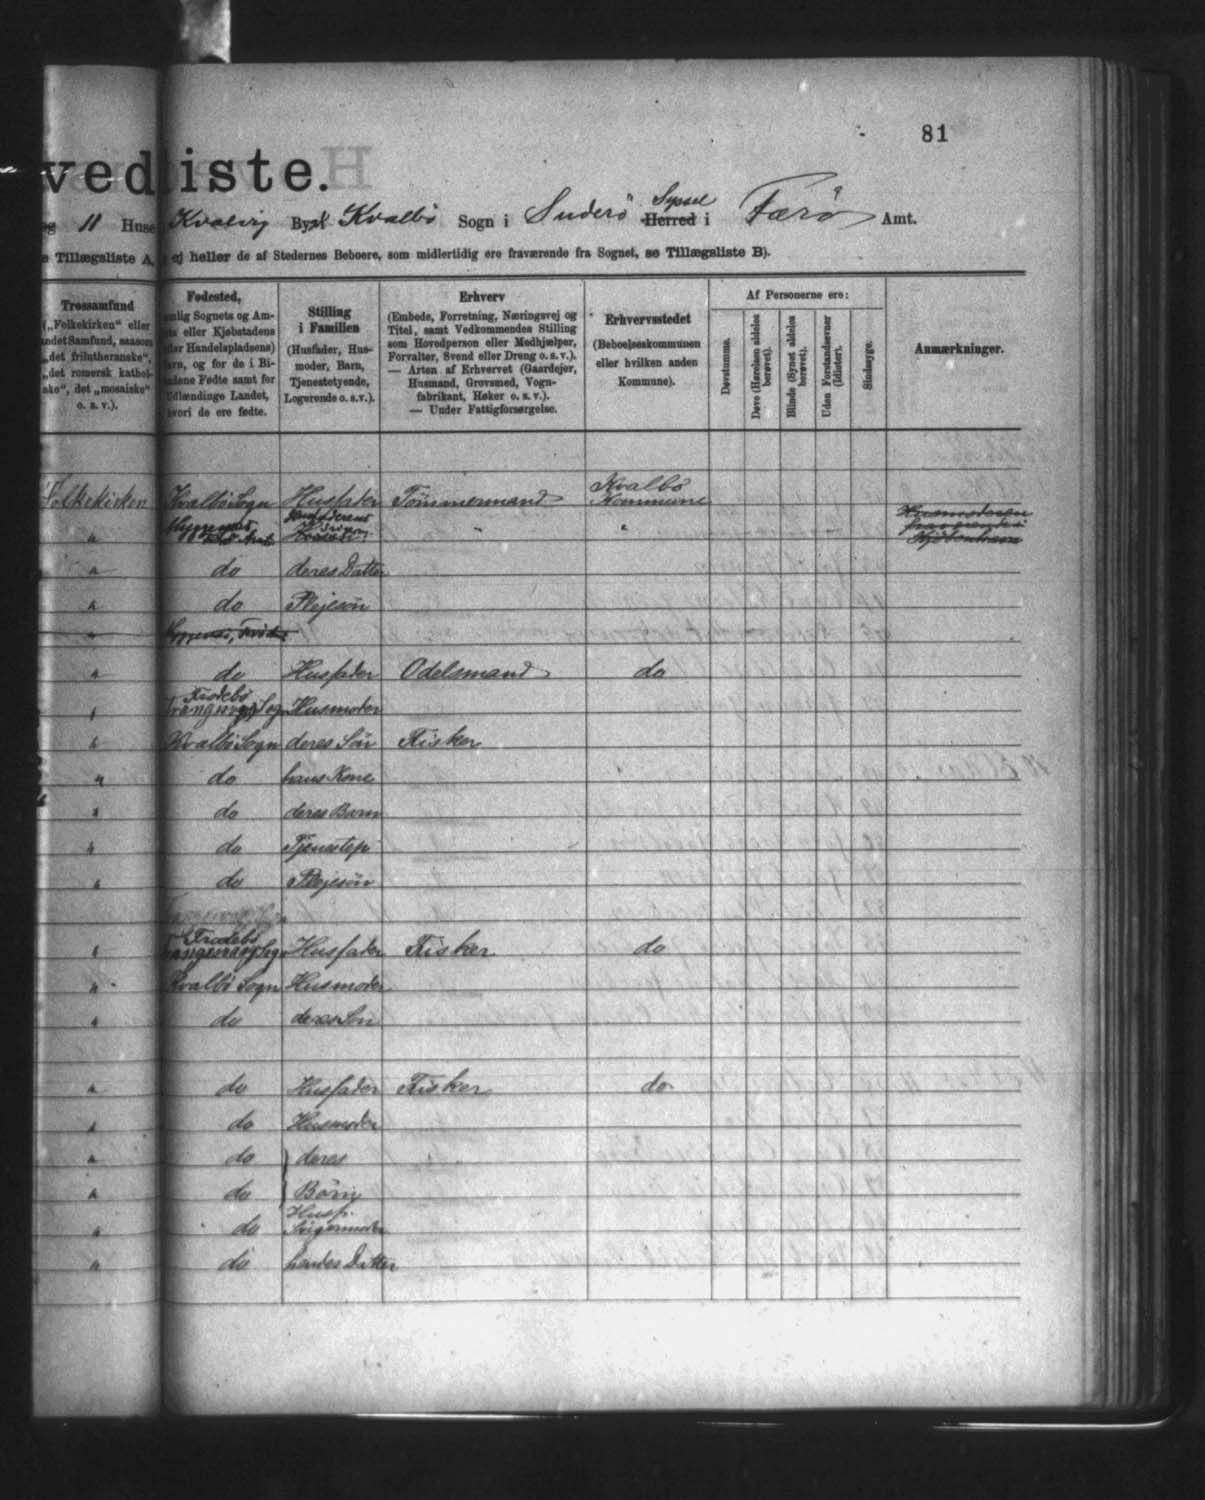 81
vedliste.
og 11 Huse Kvalvig By Kvalbø Sogn i Suderø Syssel Herred i Færø Amt.
e Tillægsliste A, ej heller de af Stedernes Beboere, som midlertidig ere fraværende fra Sognet, se Tillægsliste B).
Trossamfund
(„Folkekirken" eller
andet Samfund, saasom
„det frilutheranske",
„det romersk kathol-
ske", det „mosaiske"
o. s. v.).
Fødested,
nlig Sognets og Am-
ts eller Kjøbstadens
ller Handelspladsens)
avn, og for de i Bi-
ndene Fødte samt for
Udlændinge Landet,
hvori de ere fødte.
Stilling
i Familien
(Husfader, Hus-
moder, Barn,
Tjenestetyende,
Logerende o. s. v.).
Erhverv
(Embede, Forretning, Næringsvej og
Titel, samt Vedkommendes Stilling
som Hovedperson eller Medhjælper,
Forvalter, Svend eller Dreng o. s. v.).
— Arten af Erhvervet (Gaardejer,
Husmand, Grovsmed, Vogn-
fabrikant, Høker o. s. v.).
— Under Fattigforsørgelse.
Erhvervsstedet
(Beboelseskommunen
eller hvilken anden
Kommune).
Af Personerne ere:
Døvstumme.
Døve (Hørelsen aldeles
berøvet).
Blinde (Synet aldeles
berøvet).
Uden Forstandsevner
(Idioter).
Sindssyge.
Anmærkninger.
Folkekirken Kvalbø Sogn Husfader Tømmermand Kvalbø Kommune
" "
" do deres Datter
" do Plejesøn
" do Husfader Odelsmand do
" Frodebø Trangisvaag Sogn Husmoder
" Kvalbø Sogn deres Søn Fisker
" do hans Kone
" do deres Barn
" do Tjenestep
" do Plejesøn
" Frodebø Trangisvaag Sogn Husfader Fisker do
" Kvalbø Sogn Husmoder
" do deres Søn
" do Husfader Fisker do
" do Husmoder
" do deres
" do Børn
" do Husf. Svigermoder
" do hendes Datter